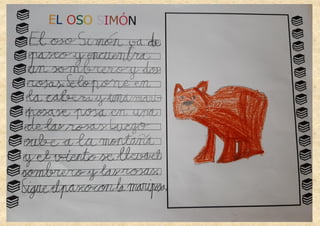 EL OSO SIMÓN
El oso Simón va de
paseo y encuentra
un sombrero y dos
rosas. Se lo pone en
la cabeza y una mari
posa se posa en una
de las rosas. Luego
sube a la montaña
y el viento se lleva el
sombrero y las rosas.
Sigue el paseo con la mariposa.